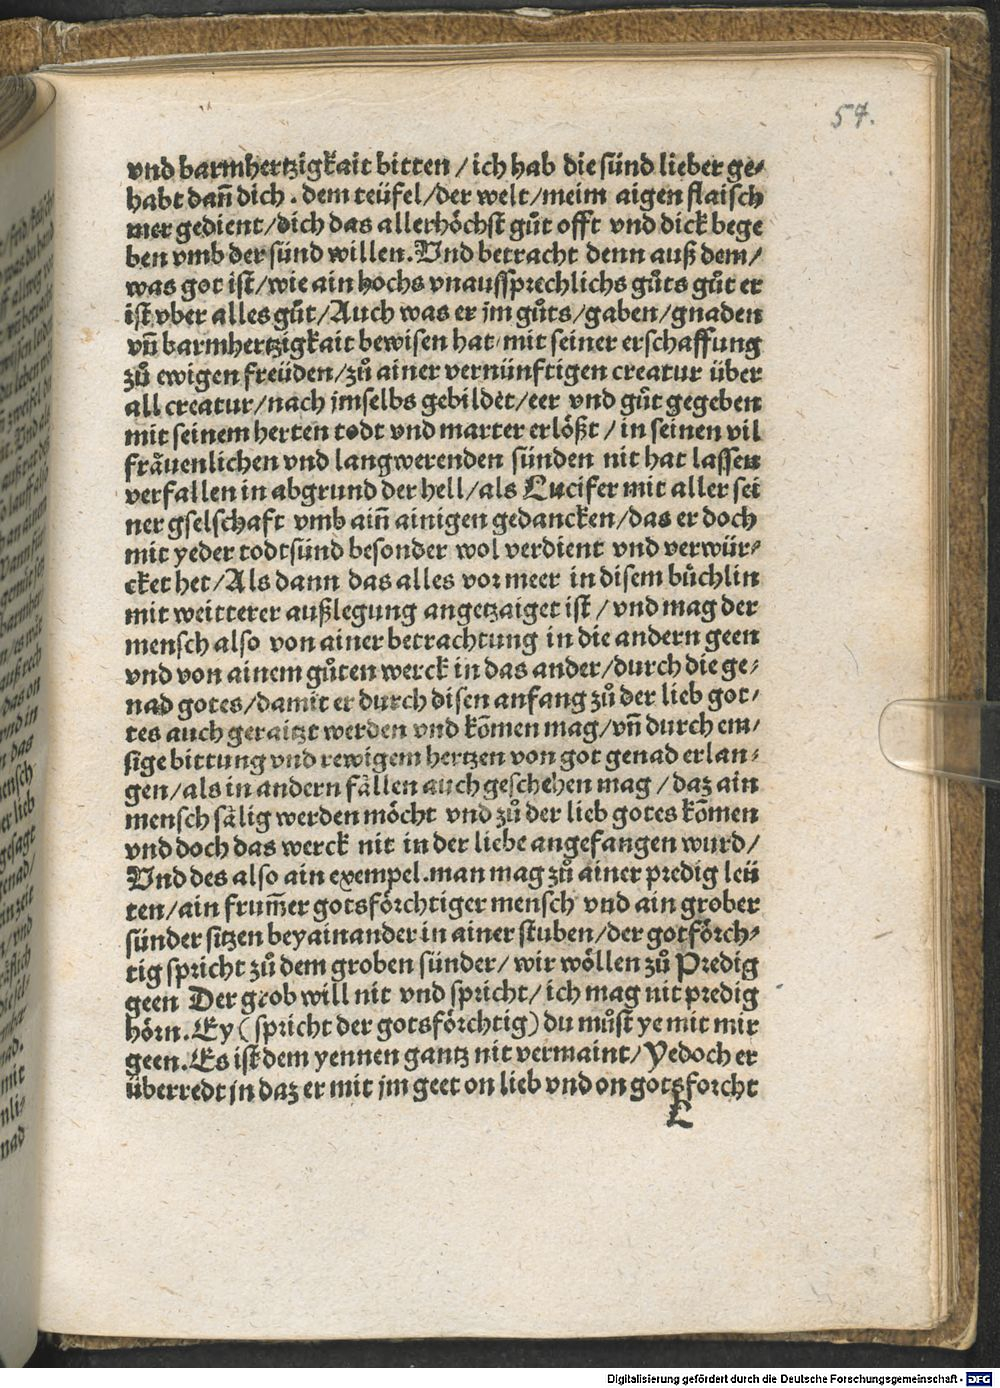 57.
vnd barmhertzigkait bitten / ich hab die sünd lieber ge⸗
habt dañ dich . dem teüfel/der welt/meim aigen flaisch
mer gedient/dich das allerhöchst gůt offt vnd dick bege
ben vmb der sünd willen. Vnd betracht denn auß dem/
was got ist/wie ain hochs vnaussprechlichs gůts gůt er
ist vber alles gůt/Auch was er jm gůts/gaben/gnaden
vñ barmhertzigkait bewisen hat/mit seiner erschaffung
zů ewigen freüden/zů ainer vernünfftigen creatur über
all creatur/nach jmselbs gebildet/eer vnd gůt gegeben
mit seinem herten todt vnd marter erlößt / in seinen vil
fräuenlichen vnd langwerenden sünden nit hat lassen
verfallen in abgrund der hell/als Lucifer mit aller sei
ner gselschaft vmb aiñ ainigen gedancken/das er doch
mit yeder todtsünd besonder wol verdient vnd verwür⸗
cket het/Als dann das alles vor meer in disem bůchlin
mit weitterer außlegung angetzaiget ist / vnd mag der
mensch also von ainer betrachtung in die andern geen
vnd von ainem gůten werck in das ander/durch die ge⸗
nad gotes/damit er durch disen anfang zů der lieb got⸗
tes auch geraitzt werden vnd kõmen mag/vñ durch em⸗
sige bittung vnd rewigem hertzen von got genad erlan⸗
gen/als in andern fällen auch geschehen mag / daz ain
mensch sälig werden möcht vnd zů der lieb gotes kõmen
vnd doch das werck nit in der liebe angefangen wurd/
Vnd des also ain exempel.man mag zů ainer predig leü
ten/ain frum̃er gotsförchtiger mensch vnd ain grober
sünder sitzen bey ainander in ainer stuben/der gotförch⸗
tig spricht zů dem groben sünder/ wir wöllen zů Predig
geen Der grob will nit vnd spricht/ ich mag nit predig
hörn. Ey ( spricht der gotsförchtig) du můst ye mit mir
geen. Es ist dem yennen gantz nit vermaint/ Yedoch er
überredt jn daz er mit jm geet on lieb vnd on gotsforcht
L
Digitalisierung gefördert durch die Deutsche Forschungsgemeinschaft - DFG